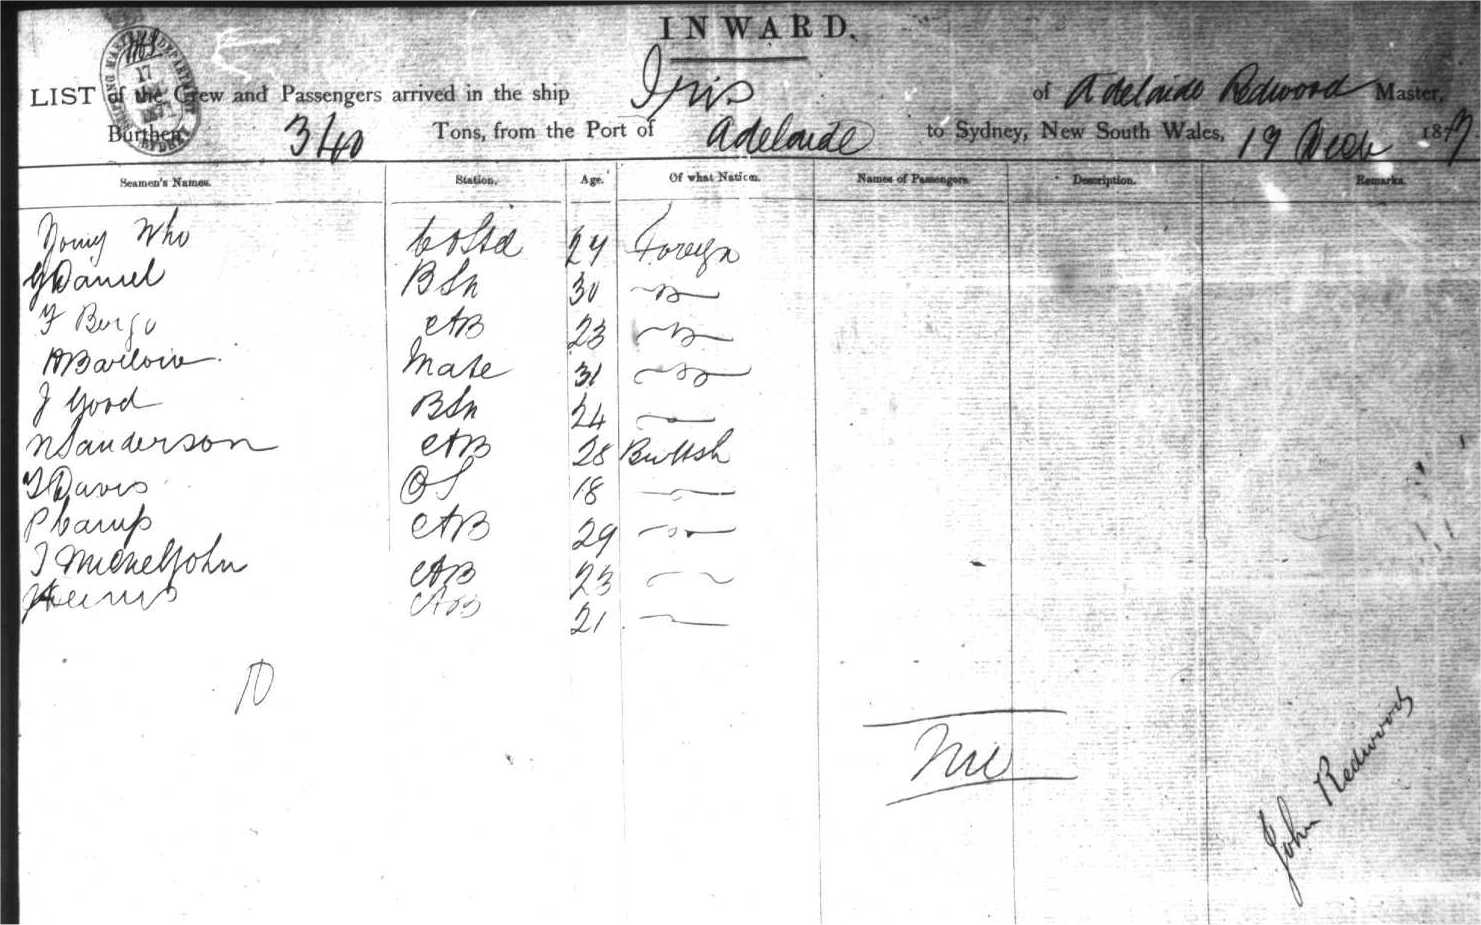 INWARD.
LIST of the Crew and Passengers arrived in the ship Iris of Adelaide Redwood Master,
Burthen 340 Tons, from the Port of Adelaide to Sydney, New South Wales, 187
Seamen's Names. Station. Age. Of what Nation. Names of Passengers. Description. Remarks.
Young Who 24 Foreign
Daniel BSn 30
F AB 23
Barlow Mate 31
J Good BSn 24
N Sanderson AB 28 British
T Davis OS 18
P AB 29
AB 23
AB 21
10
Nil
John Redwood